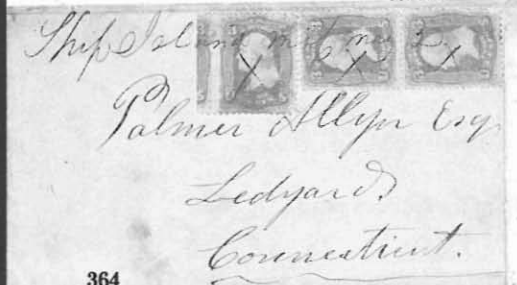 Ship Island
Palmer Allyn Esq
Ledyard
Connecticut.
364